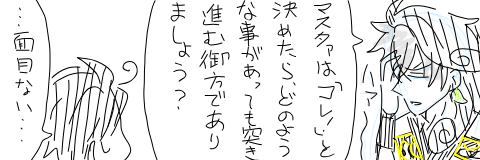 マスタァは「コレ」と
決めたらどのよう
な事があっても突き
進む御方であり
ましょう？
…面目ない…